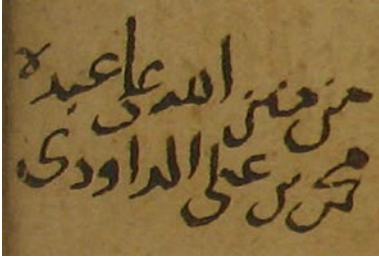 من منن الله على عبده
محمد بن علي الداودي